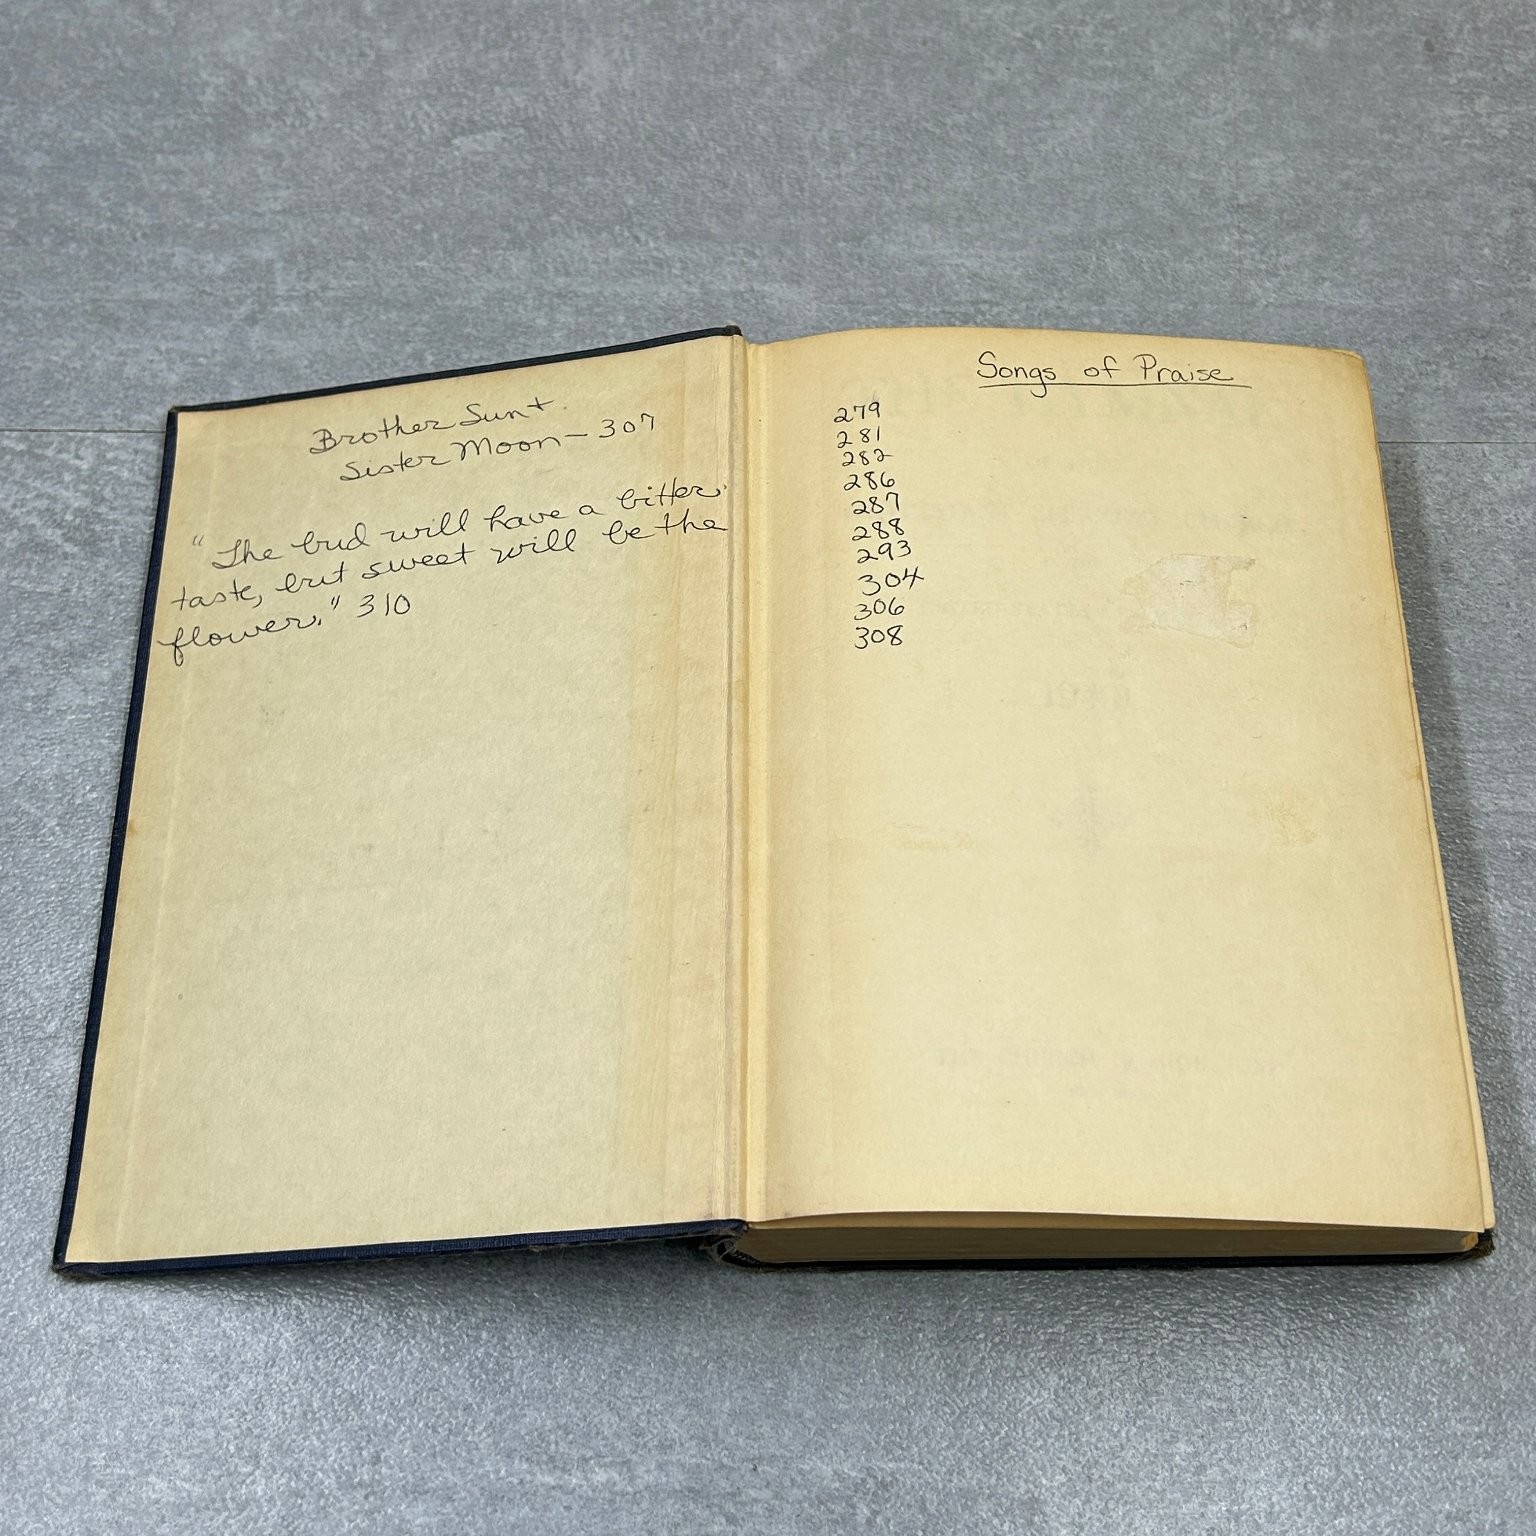 Brother Sun +
Sister Moon - 307
"The bud will have a bitter
taste, but sweet will be the
flower." 310
Songs of Praise
279
281
282
286
287
288
293
304
306
308